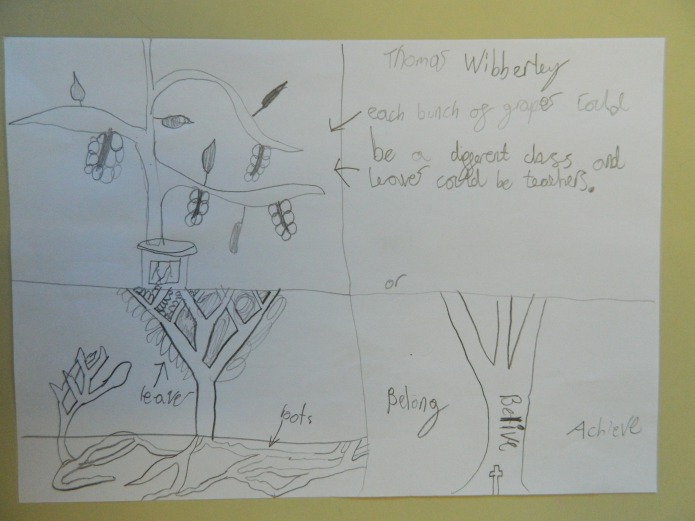 Thomas Wibberley
each bunch of grapes could
be a different class and
leaves could be teachers.
or
leaves
roots
Belong
Belive
Achieve